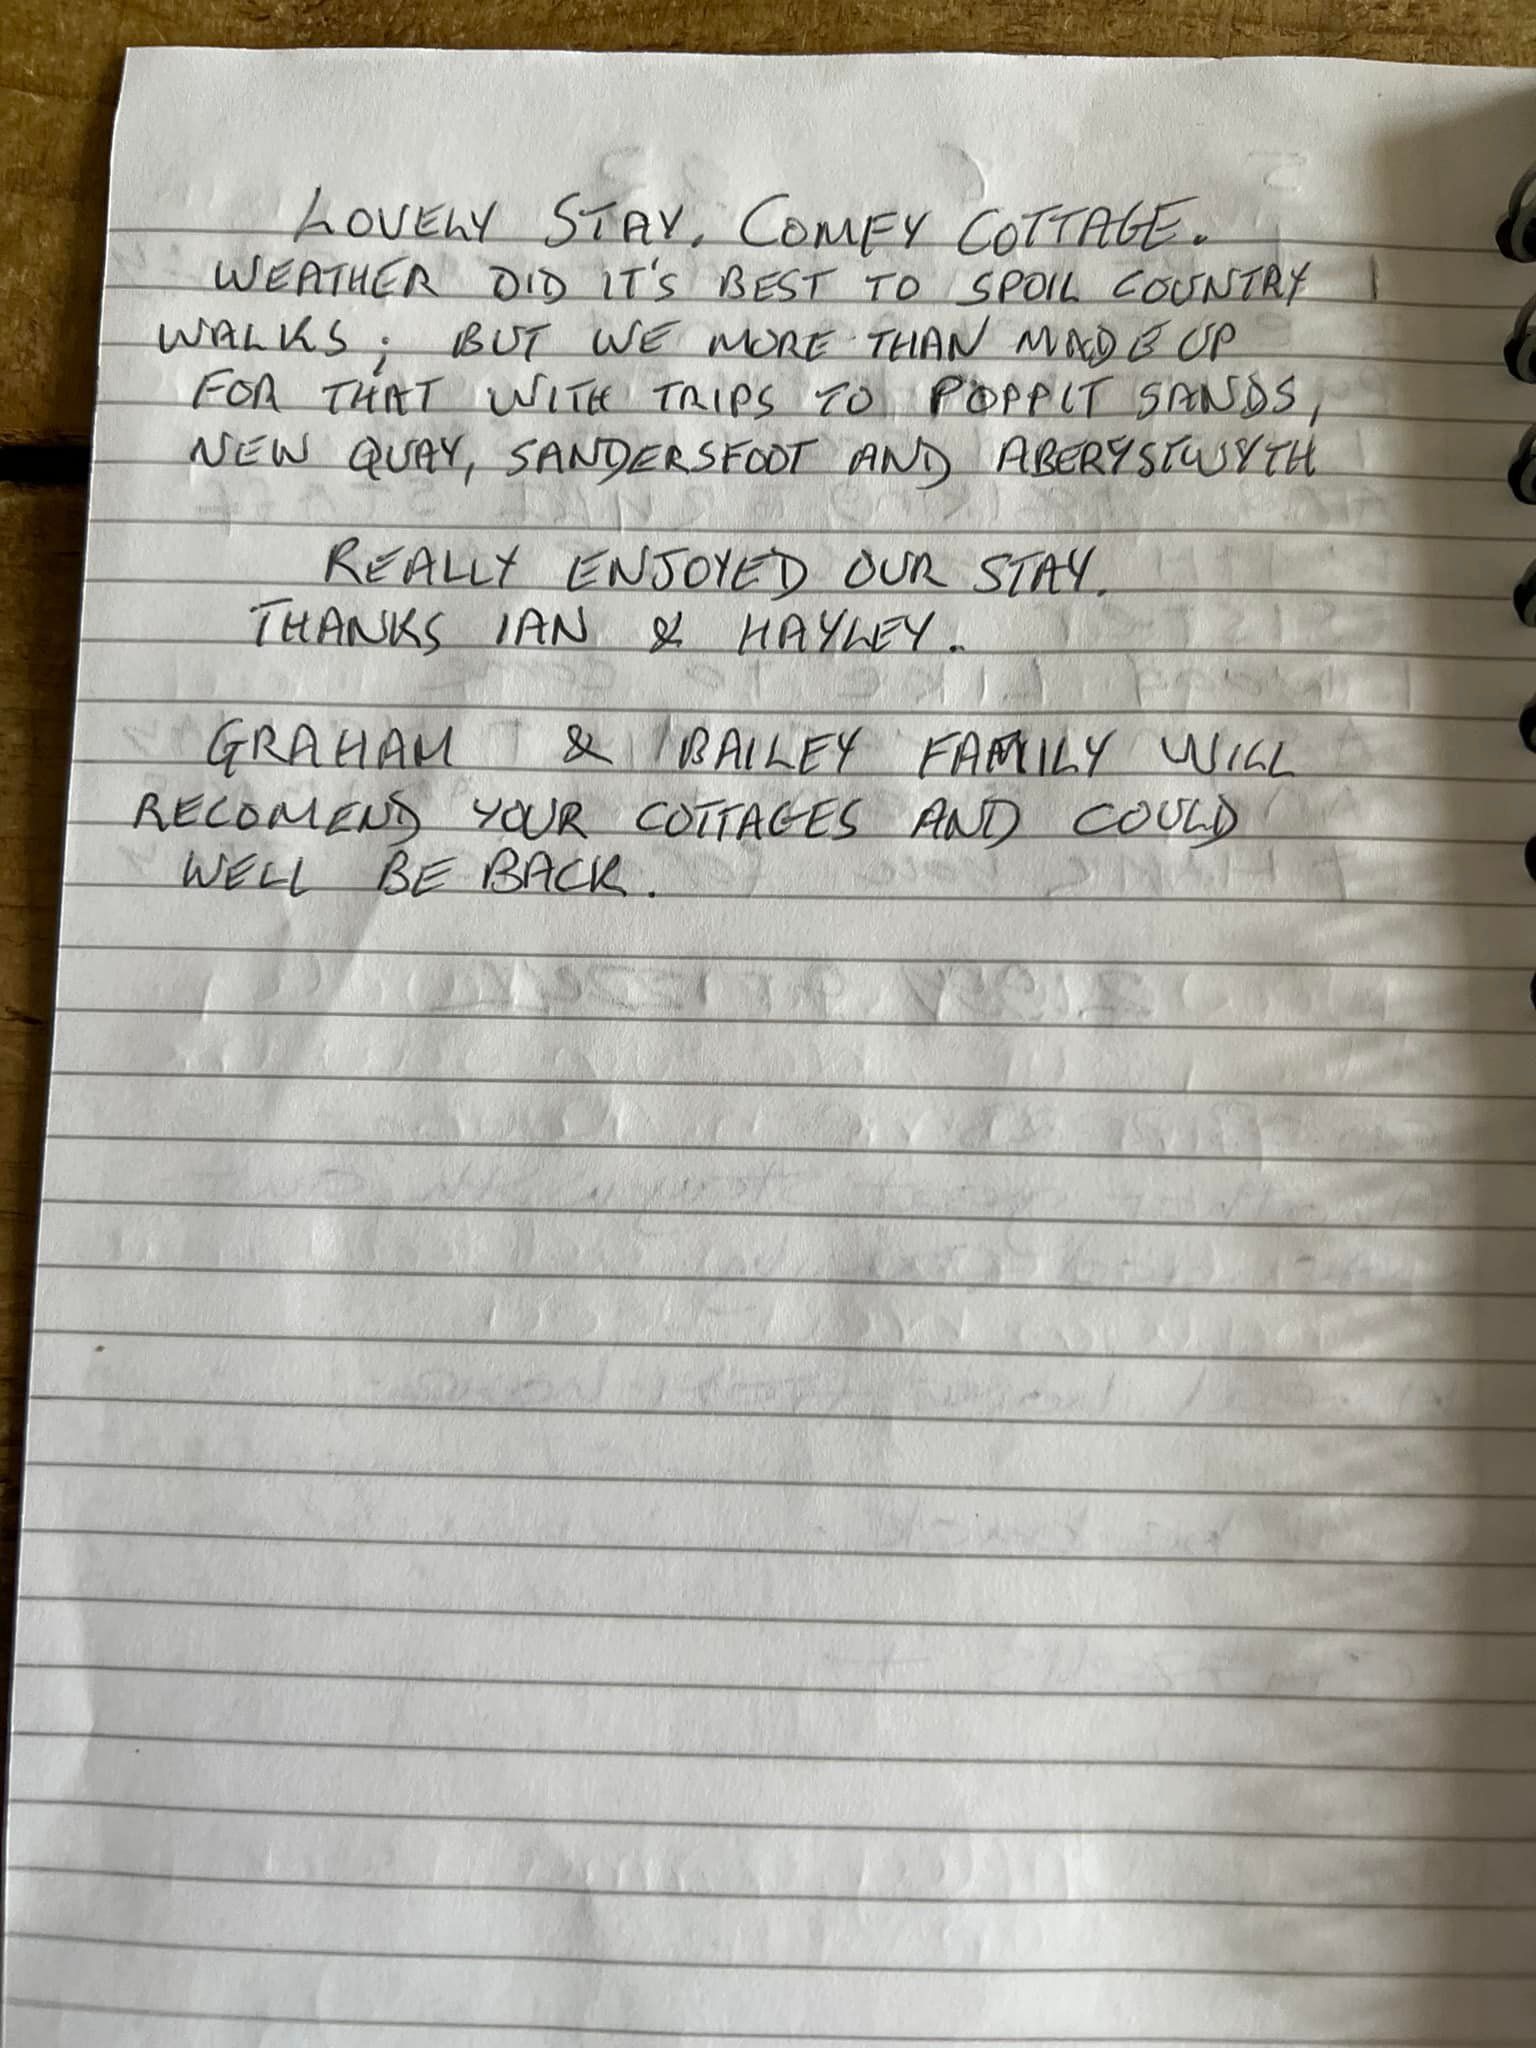 LOVELY STAY, COMFY COTTAGE.
WEATHER DID IT'S BEST TO SPOIL COUNTRY
WALKS; BUT WE MORE THAN MADE UP
FOR THAT WITH TRIPS TO POPPIT SANDS,
NEW QUAY, SANDERSFOOT AND ABERYSTWYTH
REALLY ENJOYED OUR STAY.
THANKS IAN & HAYLEY.
GRAHAM & BAILEY FAMILY WILL
RECOMEND YOUR COTTAGES AND COULD
WELL BE BACK.